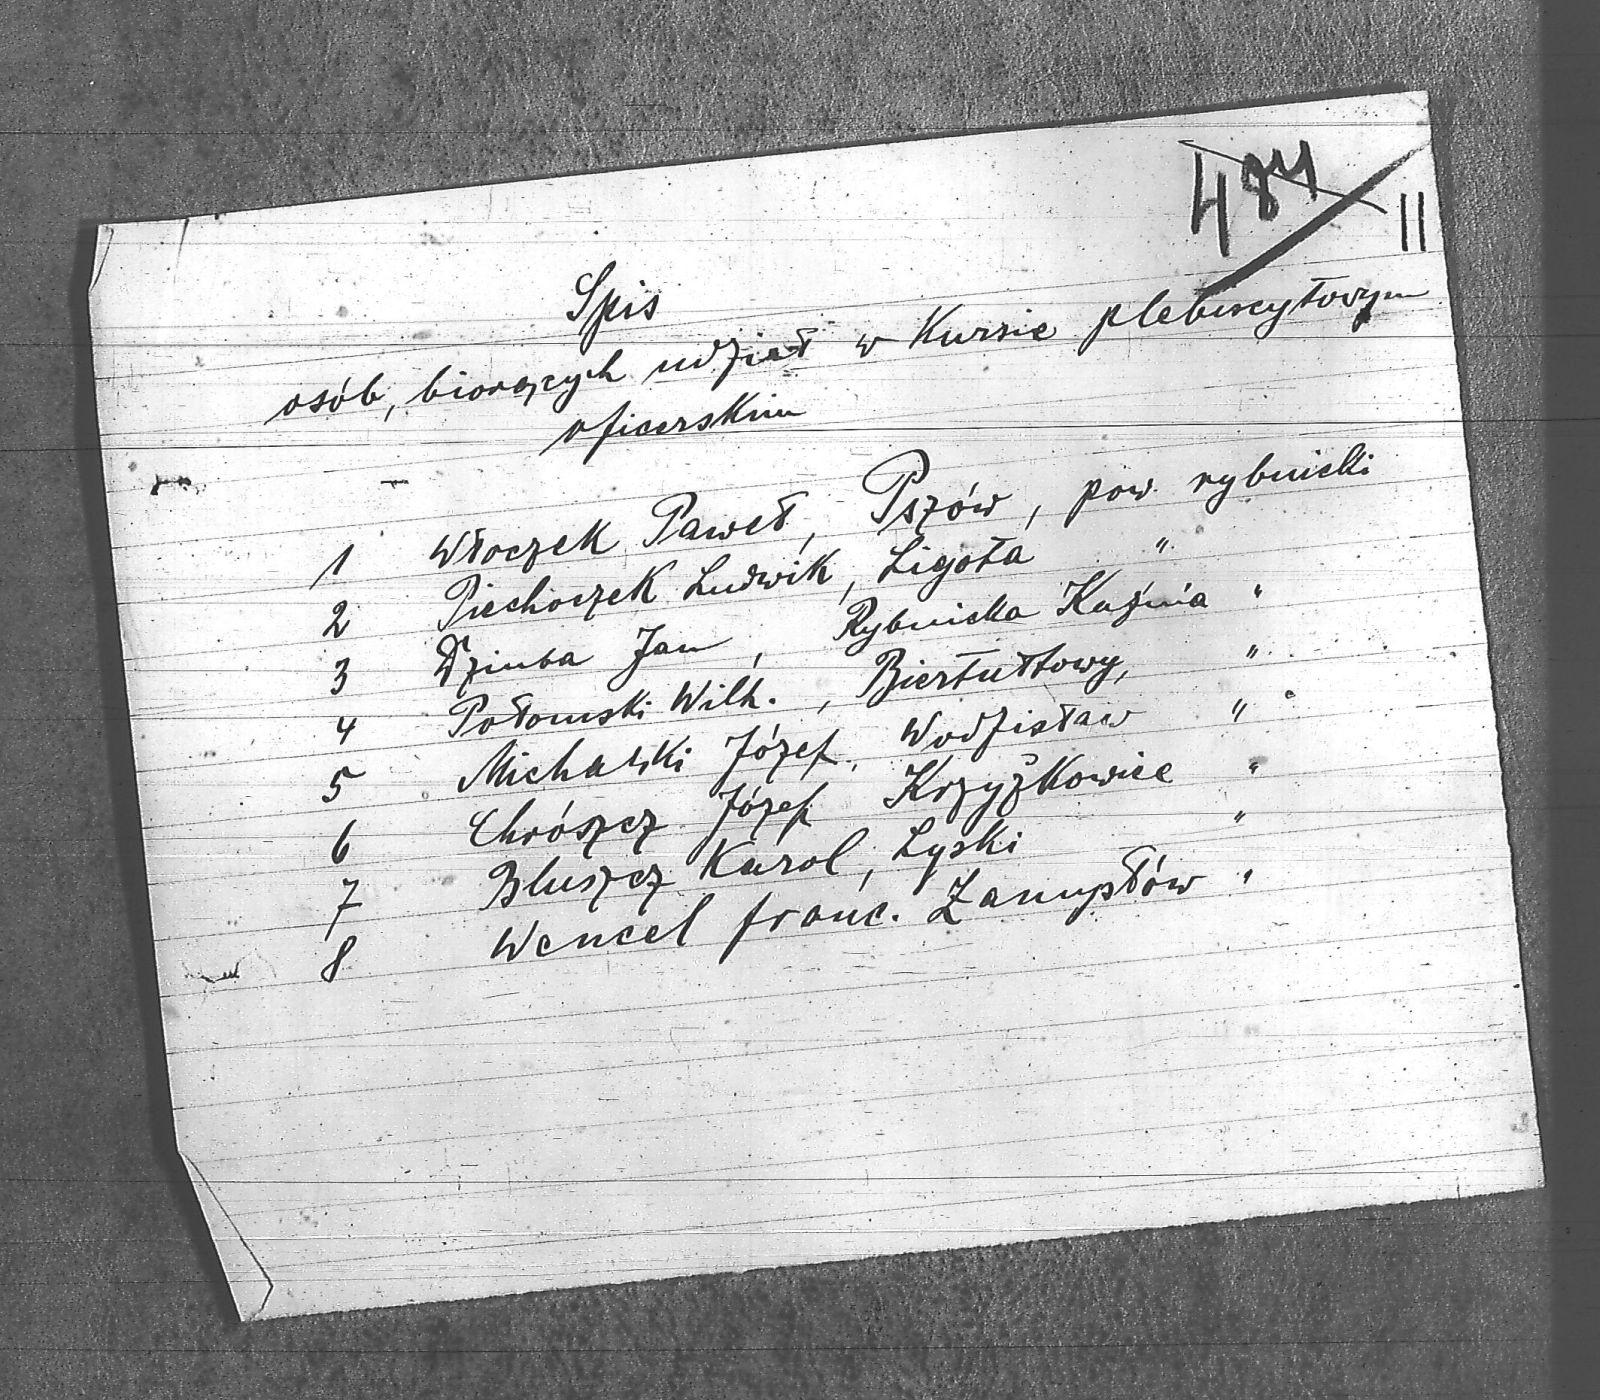 484
11
Spis
osób, biorących udział w Kursie plebiscytowym
oficerskim
1 Włoczek Paweł, Pszów, pow. rybnicki
2 Piechoczek Ludwik, Ligota "
3 Dziuba Jan, Rybnicka Kuźnia "
4 Połomski Wilh., Biertułtowy, "
5 Michalski Józef, Wodzisław "
6 Chrószcz Józef Krzyżkowice "
7 Bluszcz Karol, Lyski "
8 Wencel franc. Zamysłów "